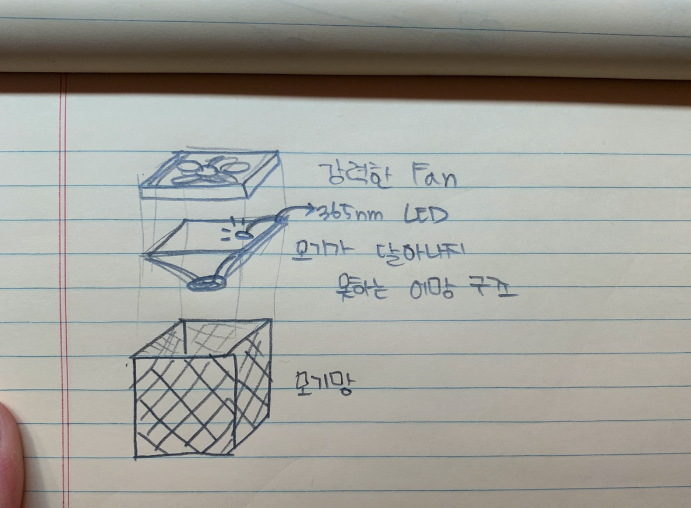 강력한 Fan
365nm LED
모기가 달아나지
못하는 어망 구조
모기망